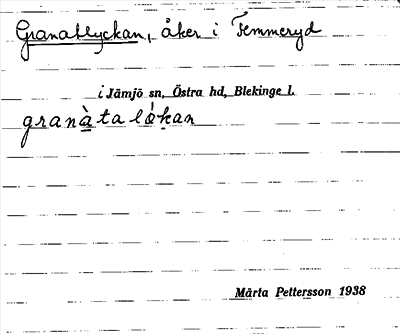 Granatlyckan, åker i Femmeryd
i Jämjö sn, Östra hd, Blekinge l.
granàtalǿkan
Märta Pettersson 1938